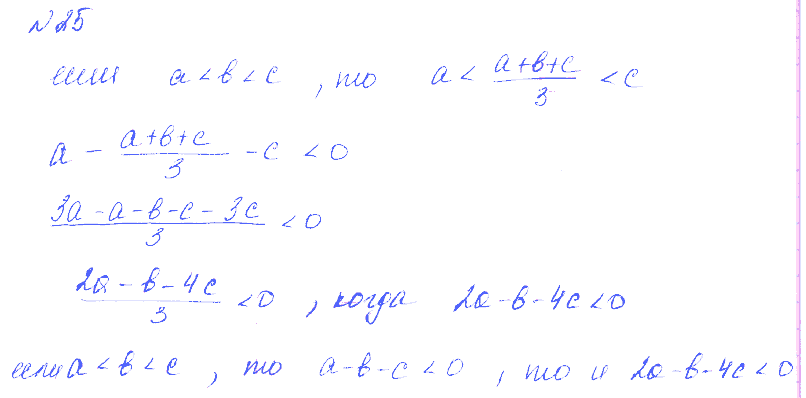 №25
если a < b < c , то a < (a+b+c)/3 < c
a - (a+b+c)/3 - c < 0
(3a - a - b - c - 3c)/3 < 0
(2a - b - 4c)/3 < 0 , когда 2a - b - 4c < 0
если a < b < c , то a - b - c < 0 , то и 2a - b - 4c < 0